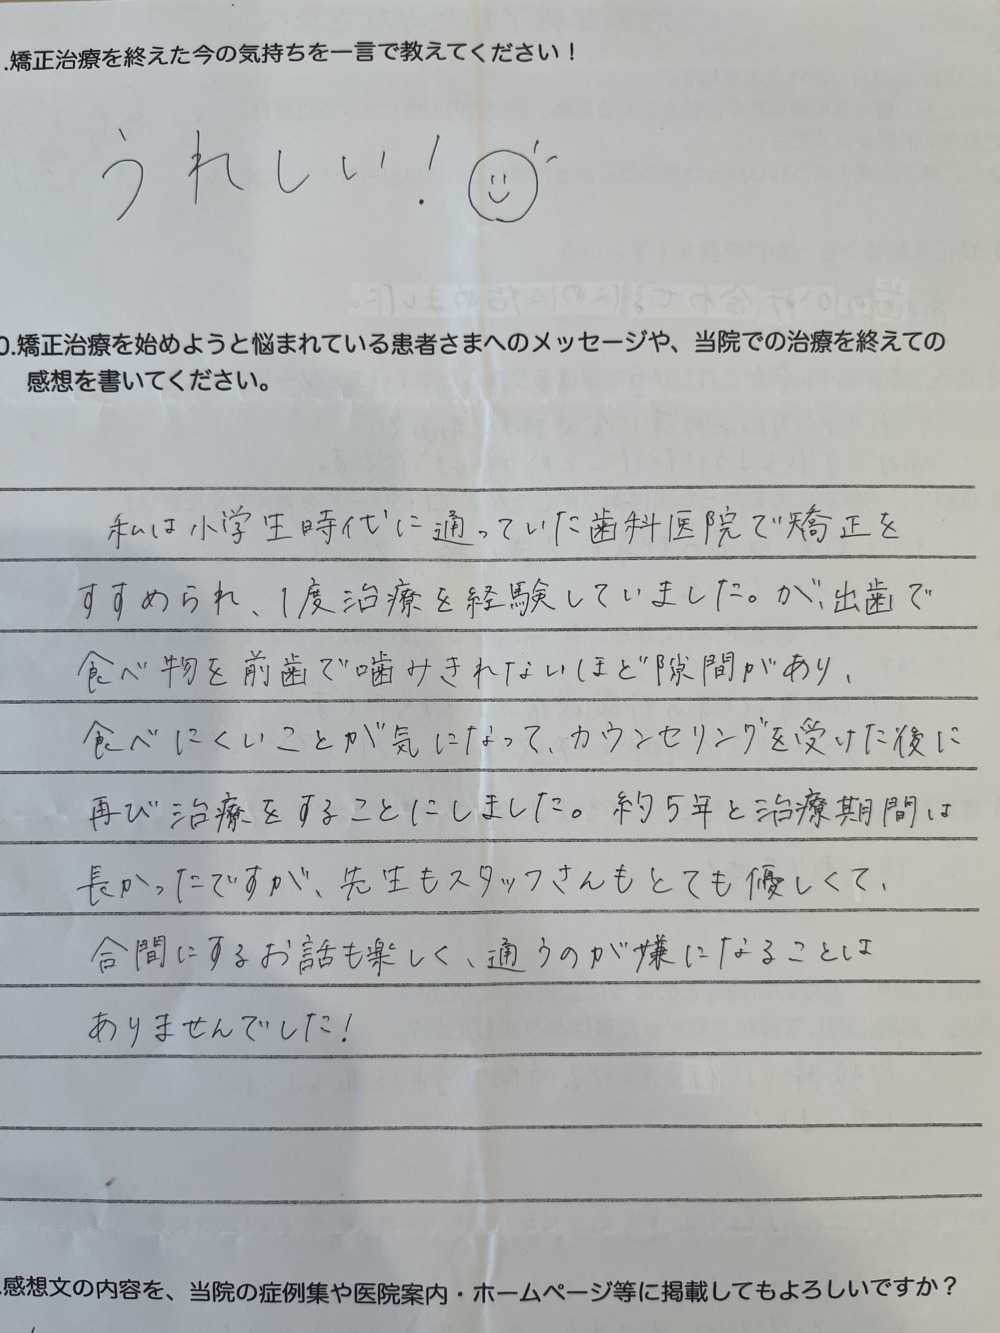 .矯正治療を終えた今の気持ちを一言で教えてください！
うれしい！
0.矯正治療を始めようと悩まれている患者さまへのメッセージや、当院での治療を終えての
感想を書いてください。
私は小学生時代に通っていた歯科医院で矯正を
すすめられ、1度治療を経験していました。が、出歯で
食べ物を前歯で噛みきれないほど隙間があり、
食べにくいことが気になって、カウンセリングを受けた後に
再び治療をすることにしました。約5年と治療期間は
長かったですが、先生もスタッフさんもとても優しくて、
合間にするお話も楽しく、通うのが嫌になることは
ありませんでした！
.感想文の内容を、当院の症例集や医院案内・ホームページ等に掲載してもよろしいですか？